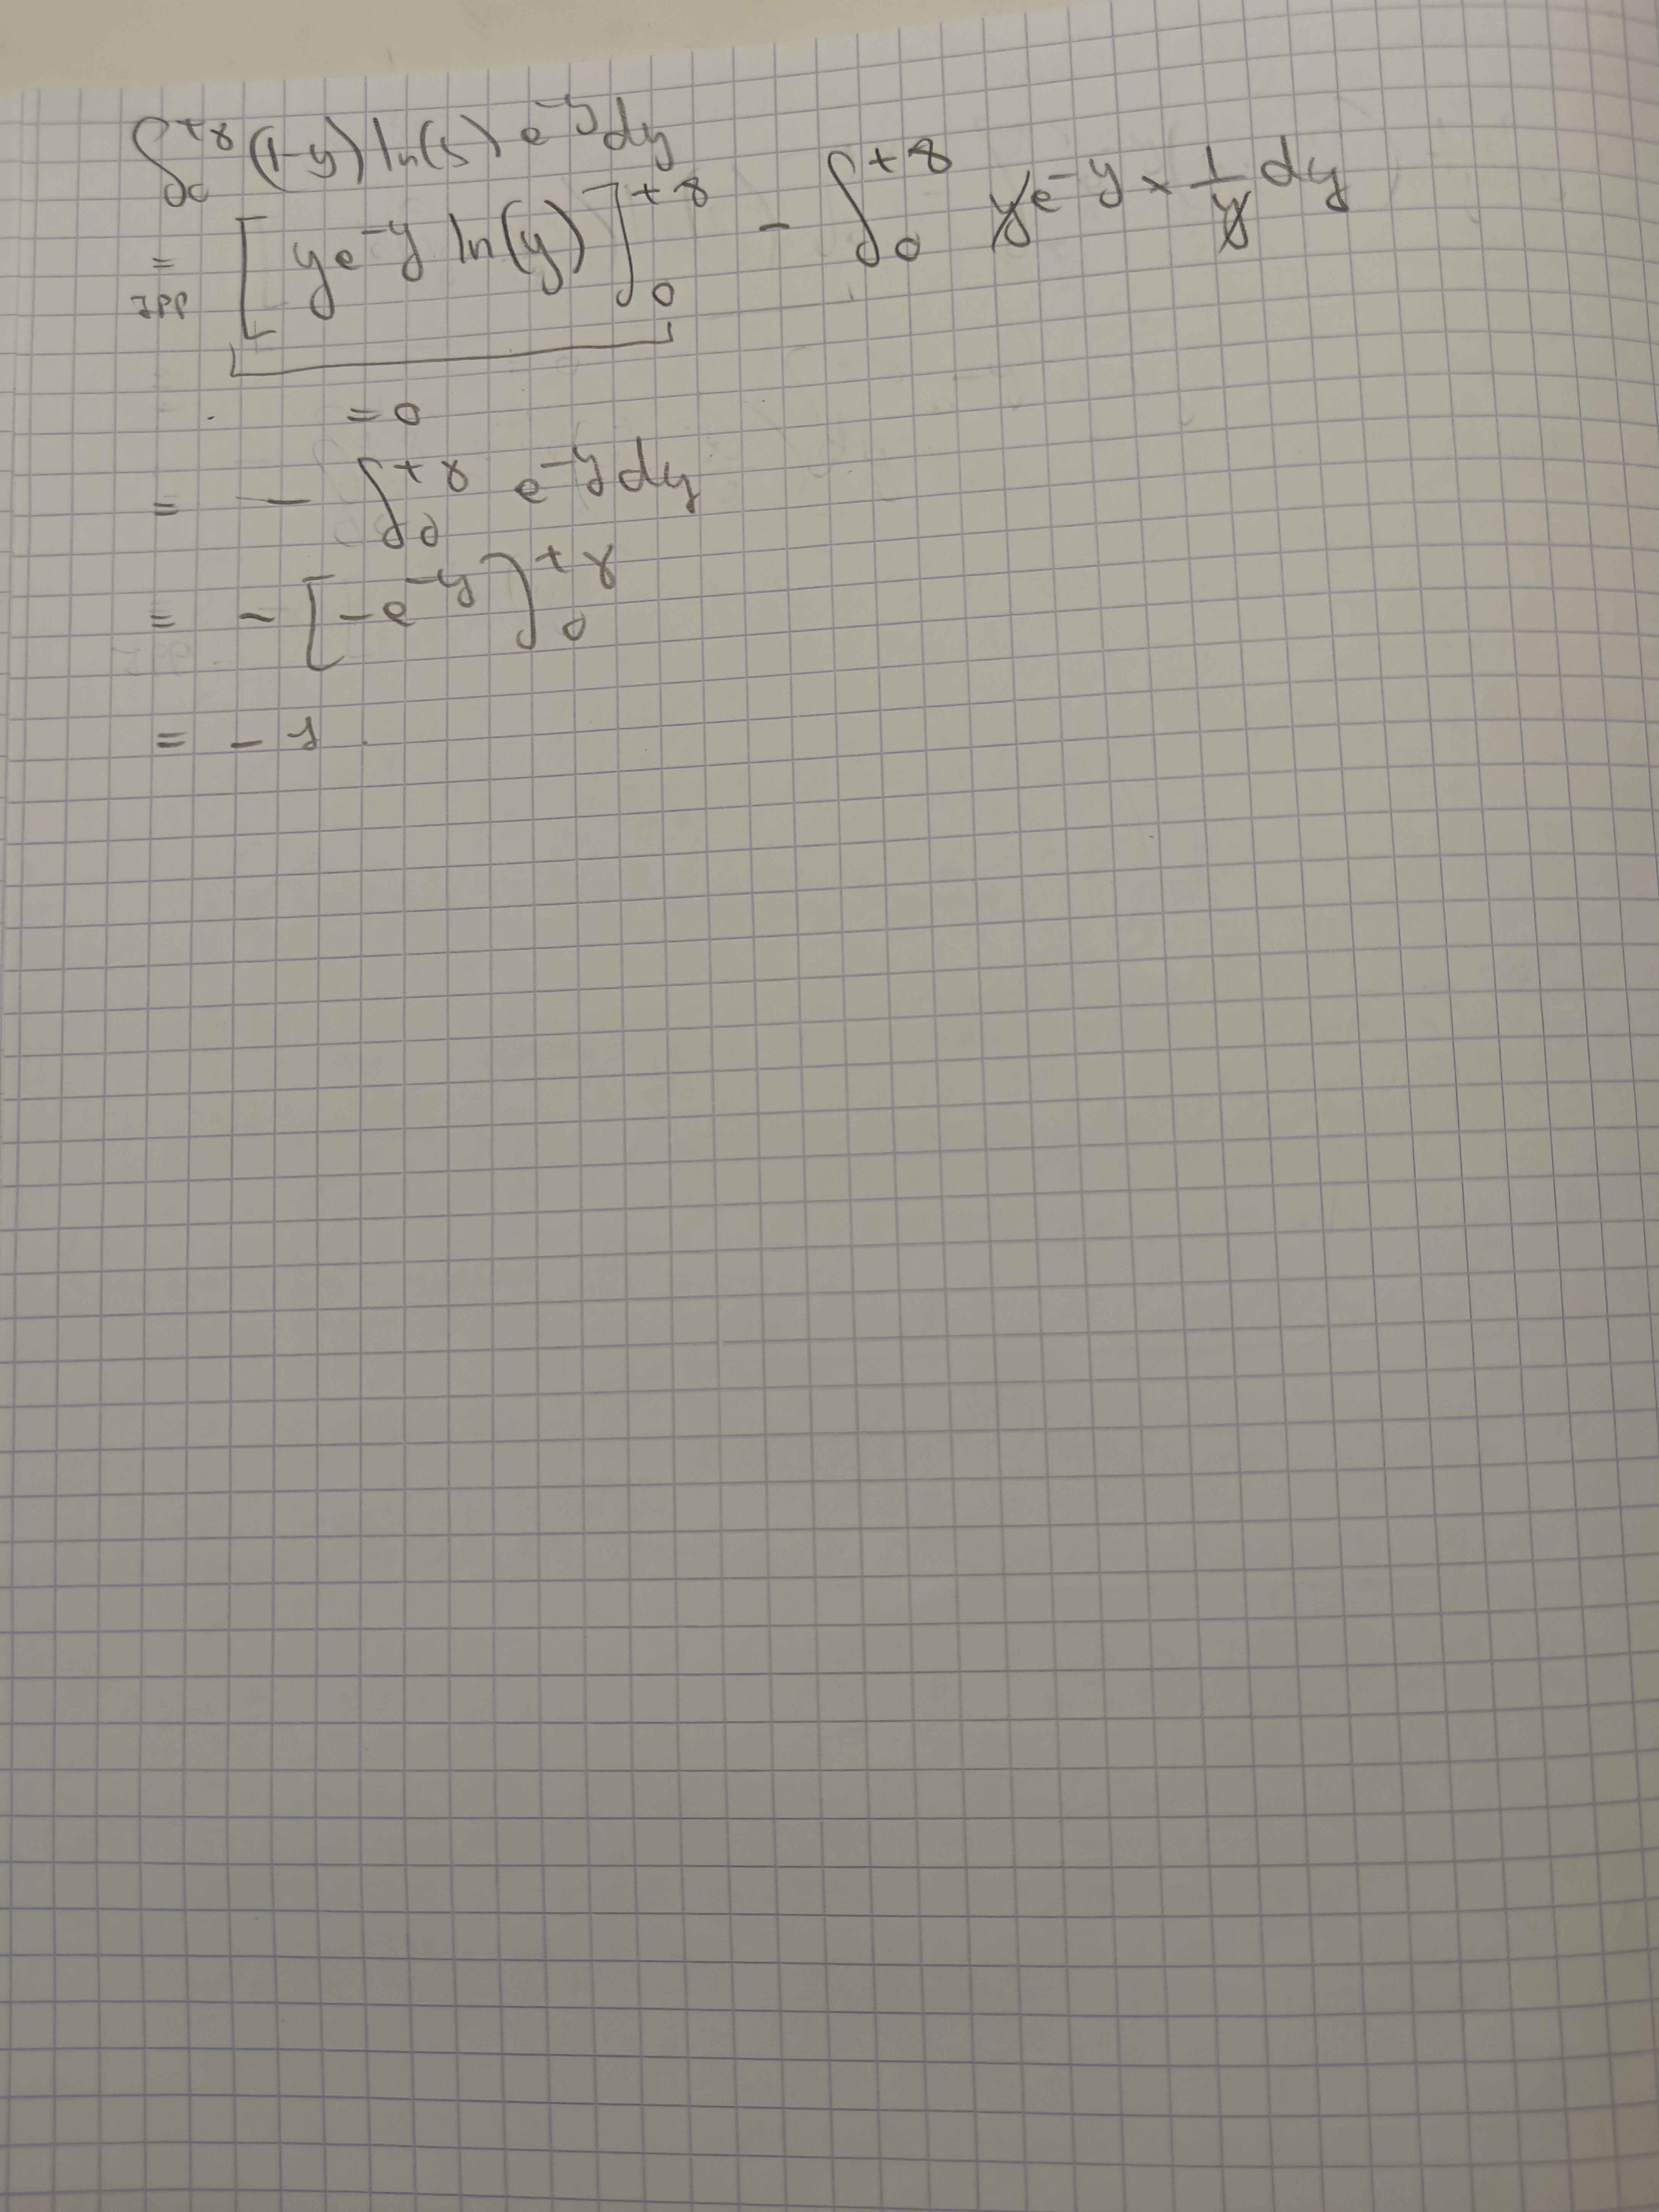 ∫₀^{+∞} (1-y) ln(y) e^{-y} dy
= IPP [ye^{-y} ln(y)]₀^{+∞} - ∫₀^{+∞} ye^{-y} × 1/y dy
= 0
= - ∫₀^{+∞} e^{-y} dy
= - [-e^{-y}]₀^{+∞}
= - 1.